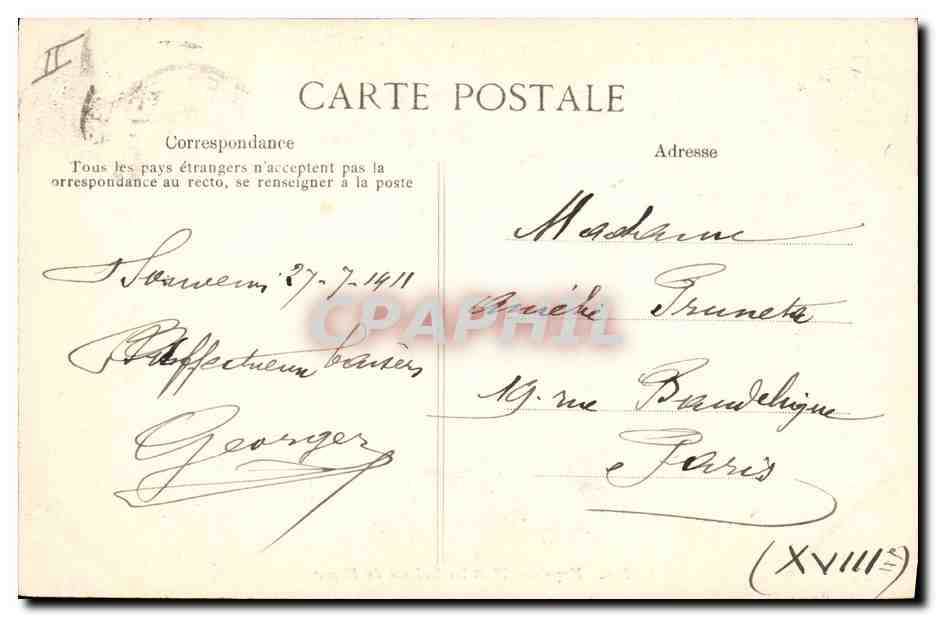 II
CARTE POSTALE
Correspondance
Tous les pays étrangers n'acceptent pas la
orrespondance au recto, se renseigner à la poste
Adresse
Souvenir 27-7-1911
Affectueux baisers
Georges
Madame
Amélie Prunet
19 rue Baudelique
Paris
(XVIIIe)
CPAPHIL